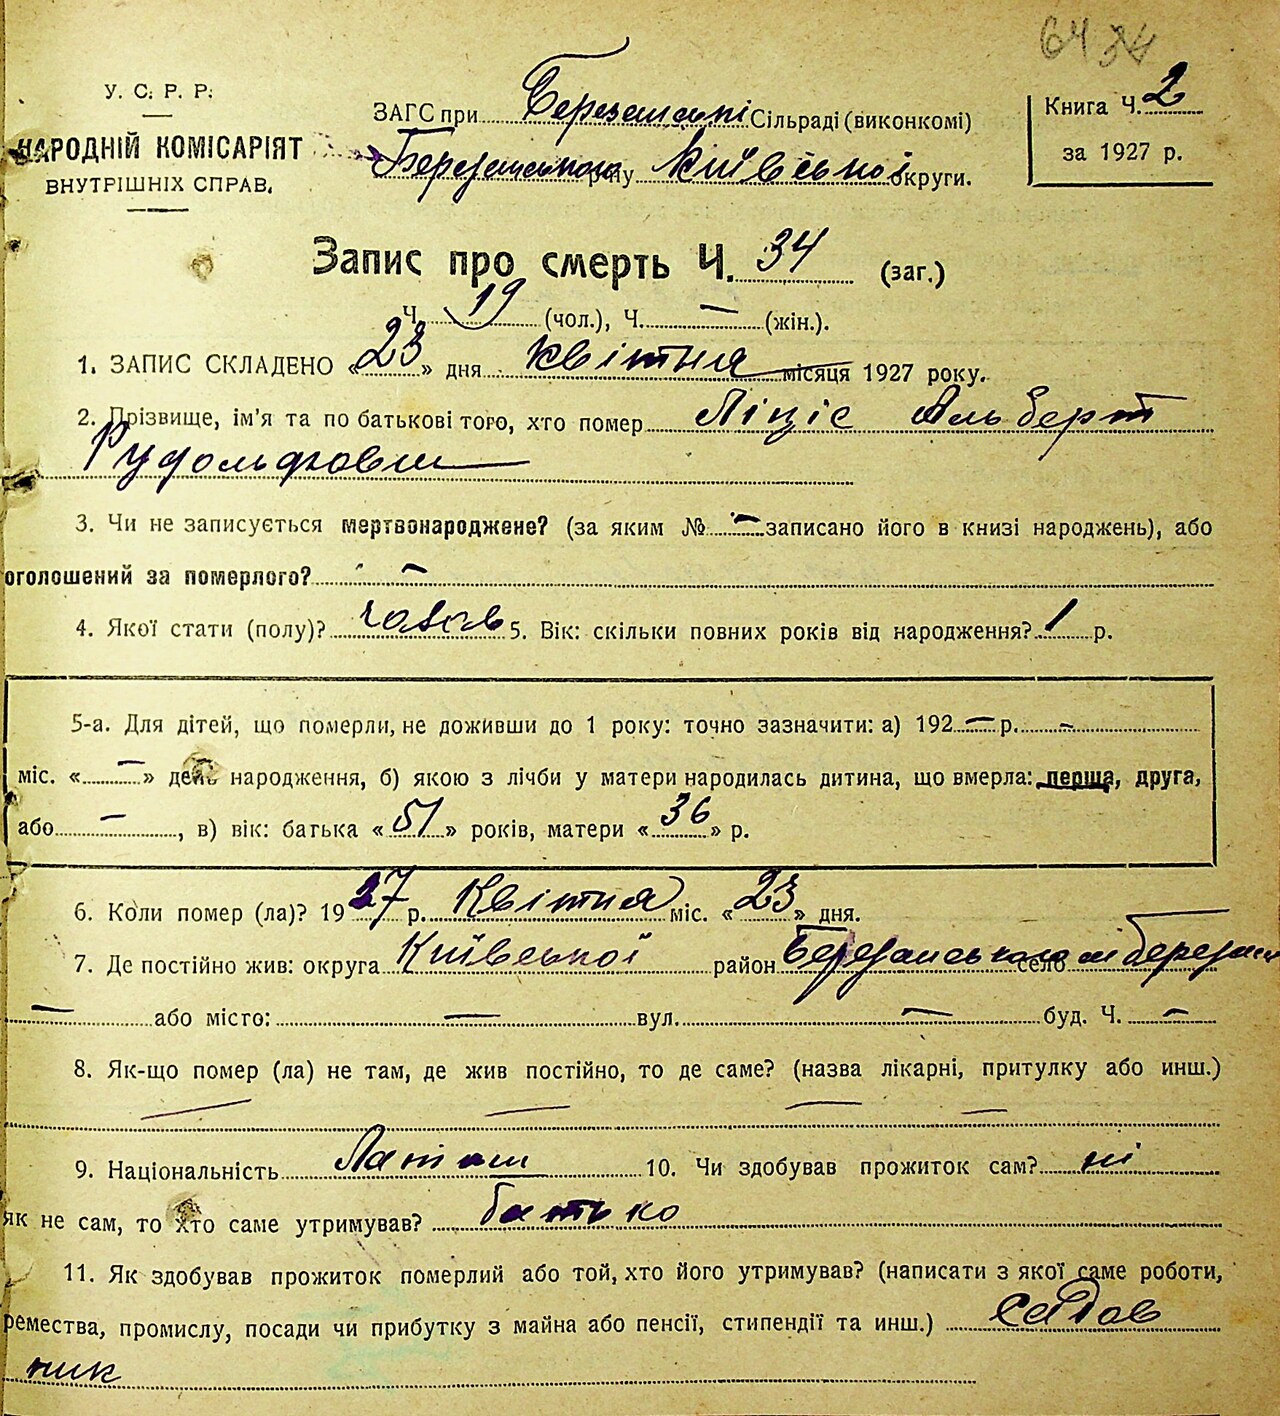 64 34
У. С. Р. Р.
НАРОДНІЙ КОМІСАРІЯТ
ВНУТРІШНІХ СПРАВ.
ЗАГС при Березанські Сільраді (виконкомі)
Березанського р-ну Київської округи.
Книга Ч. 2
за 1927 р.
Запис про смерть Ч. 34 (заг.)
Ч. 19 (чол.), Ч. — (жін.).
1. ЗАПИС СКЛАДЕНО «23» дня квітня місяця 1927 року.
2. Прізвище, ім'я та по батькові того, хто помер Ліціс Альберт
Рудольфович
3. Чи не записується мертвонароджене? (за яким № — записано його в книзі народжень), або
оголошений за померлого? —
4. Якої стати (полу)? чолов 5. Вік: скільки повних років від народження? 1 р.
5-а. Для дітей, що померли, не доживши до 1 року: точно зазначити: а) 192 — р. —
міс. « — » день народження, б) якою з лічби у матери народилась дитина, що вмерла: перща, друга,
або —, в) вік: батька «51» років, матери «36» р.
6. Коли помер (ла)? 1927 р. Квітня міс. «23» дня.
7. Де постійно жив: округа Київської район Березанського село м Березань
— або місто: — вул. — буд. Ч. —
8. Як-що помер (ла) не там, де жив постійно, то де саме? (назва лікарні, притулку або инш.)
— — — —
9. Національність Латиш 10. Чи здобував прожиток сам? ні
як не сам, то хто саме утримував? батько
11. Як здобував прожиток померлий або той, хто його утримував? (написати з якої саме роботи,
ремества, промислу, посади чи прибутку з майна або пенсії, стипендії та инш.) садов
ник